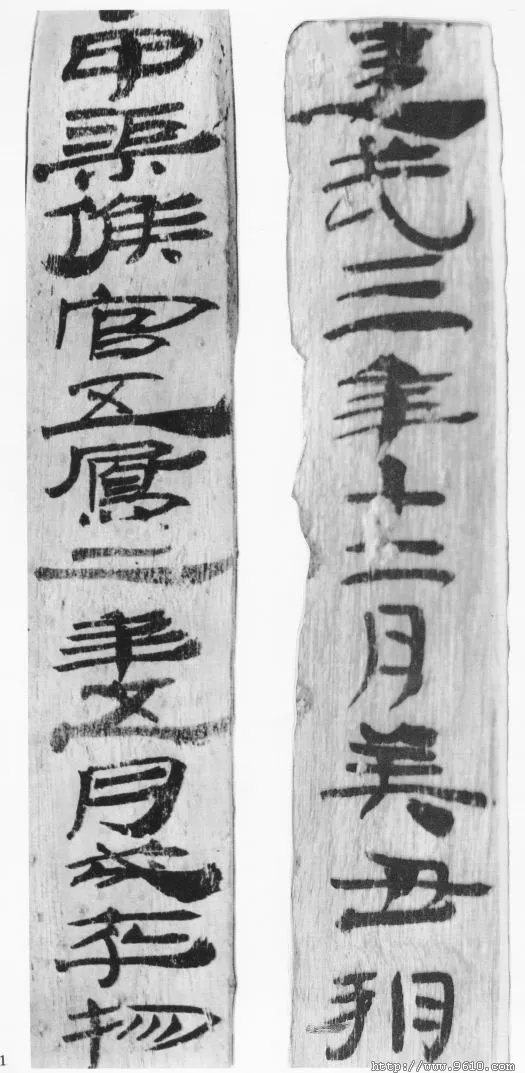 建武三年十二月癸丑朔
甲渠候官五鳳二年五月
http://www.9610.com
1